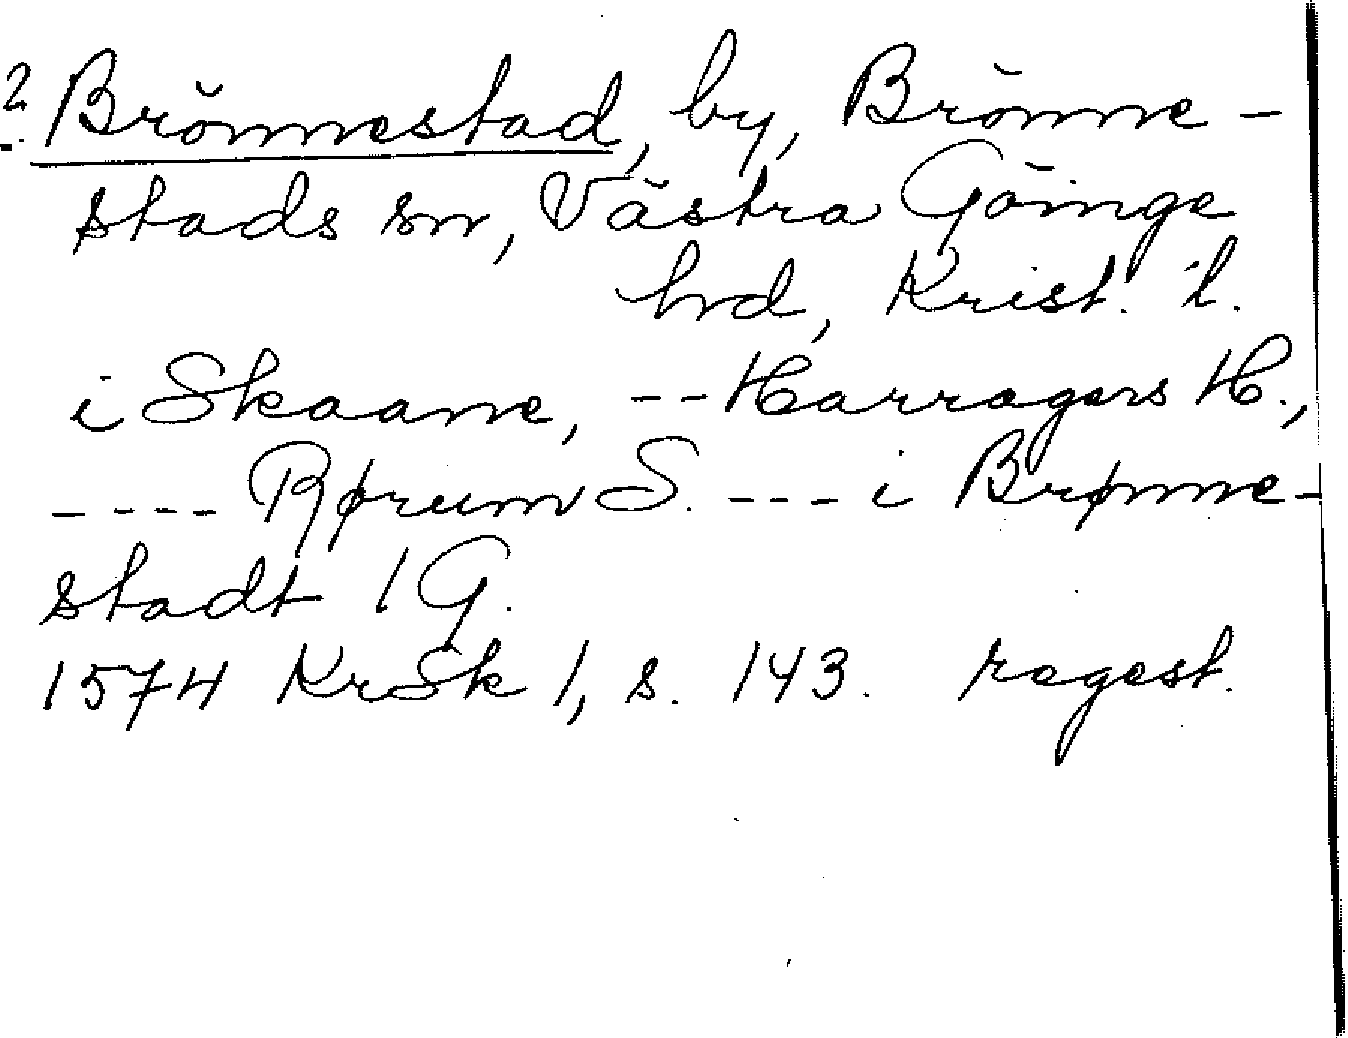 2 Brönnestad, by, Brönne-
stads sn, Västra Göinge
hd, Krist. l.
i Skaane, -- Harragers H.,
---- Rørum S. --- i Brønne-
stadt 1 G.
1574 KrSk 1, s. 143. regest.